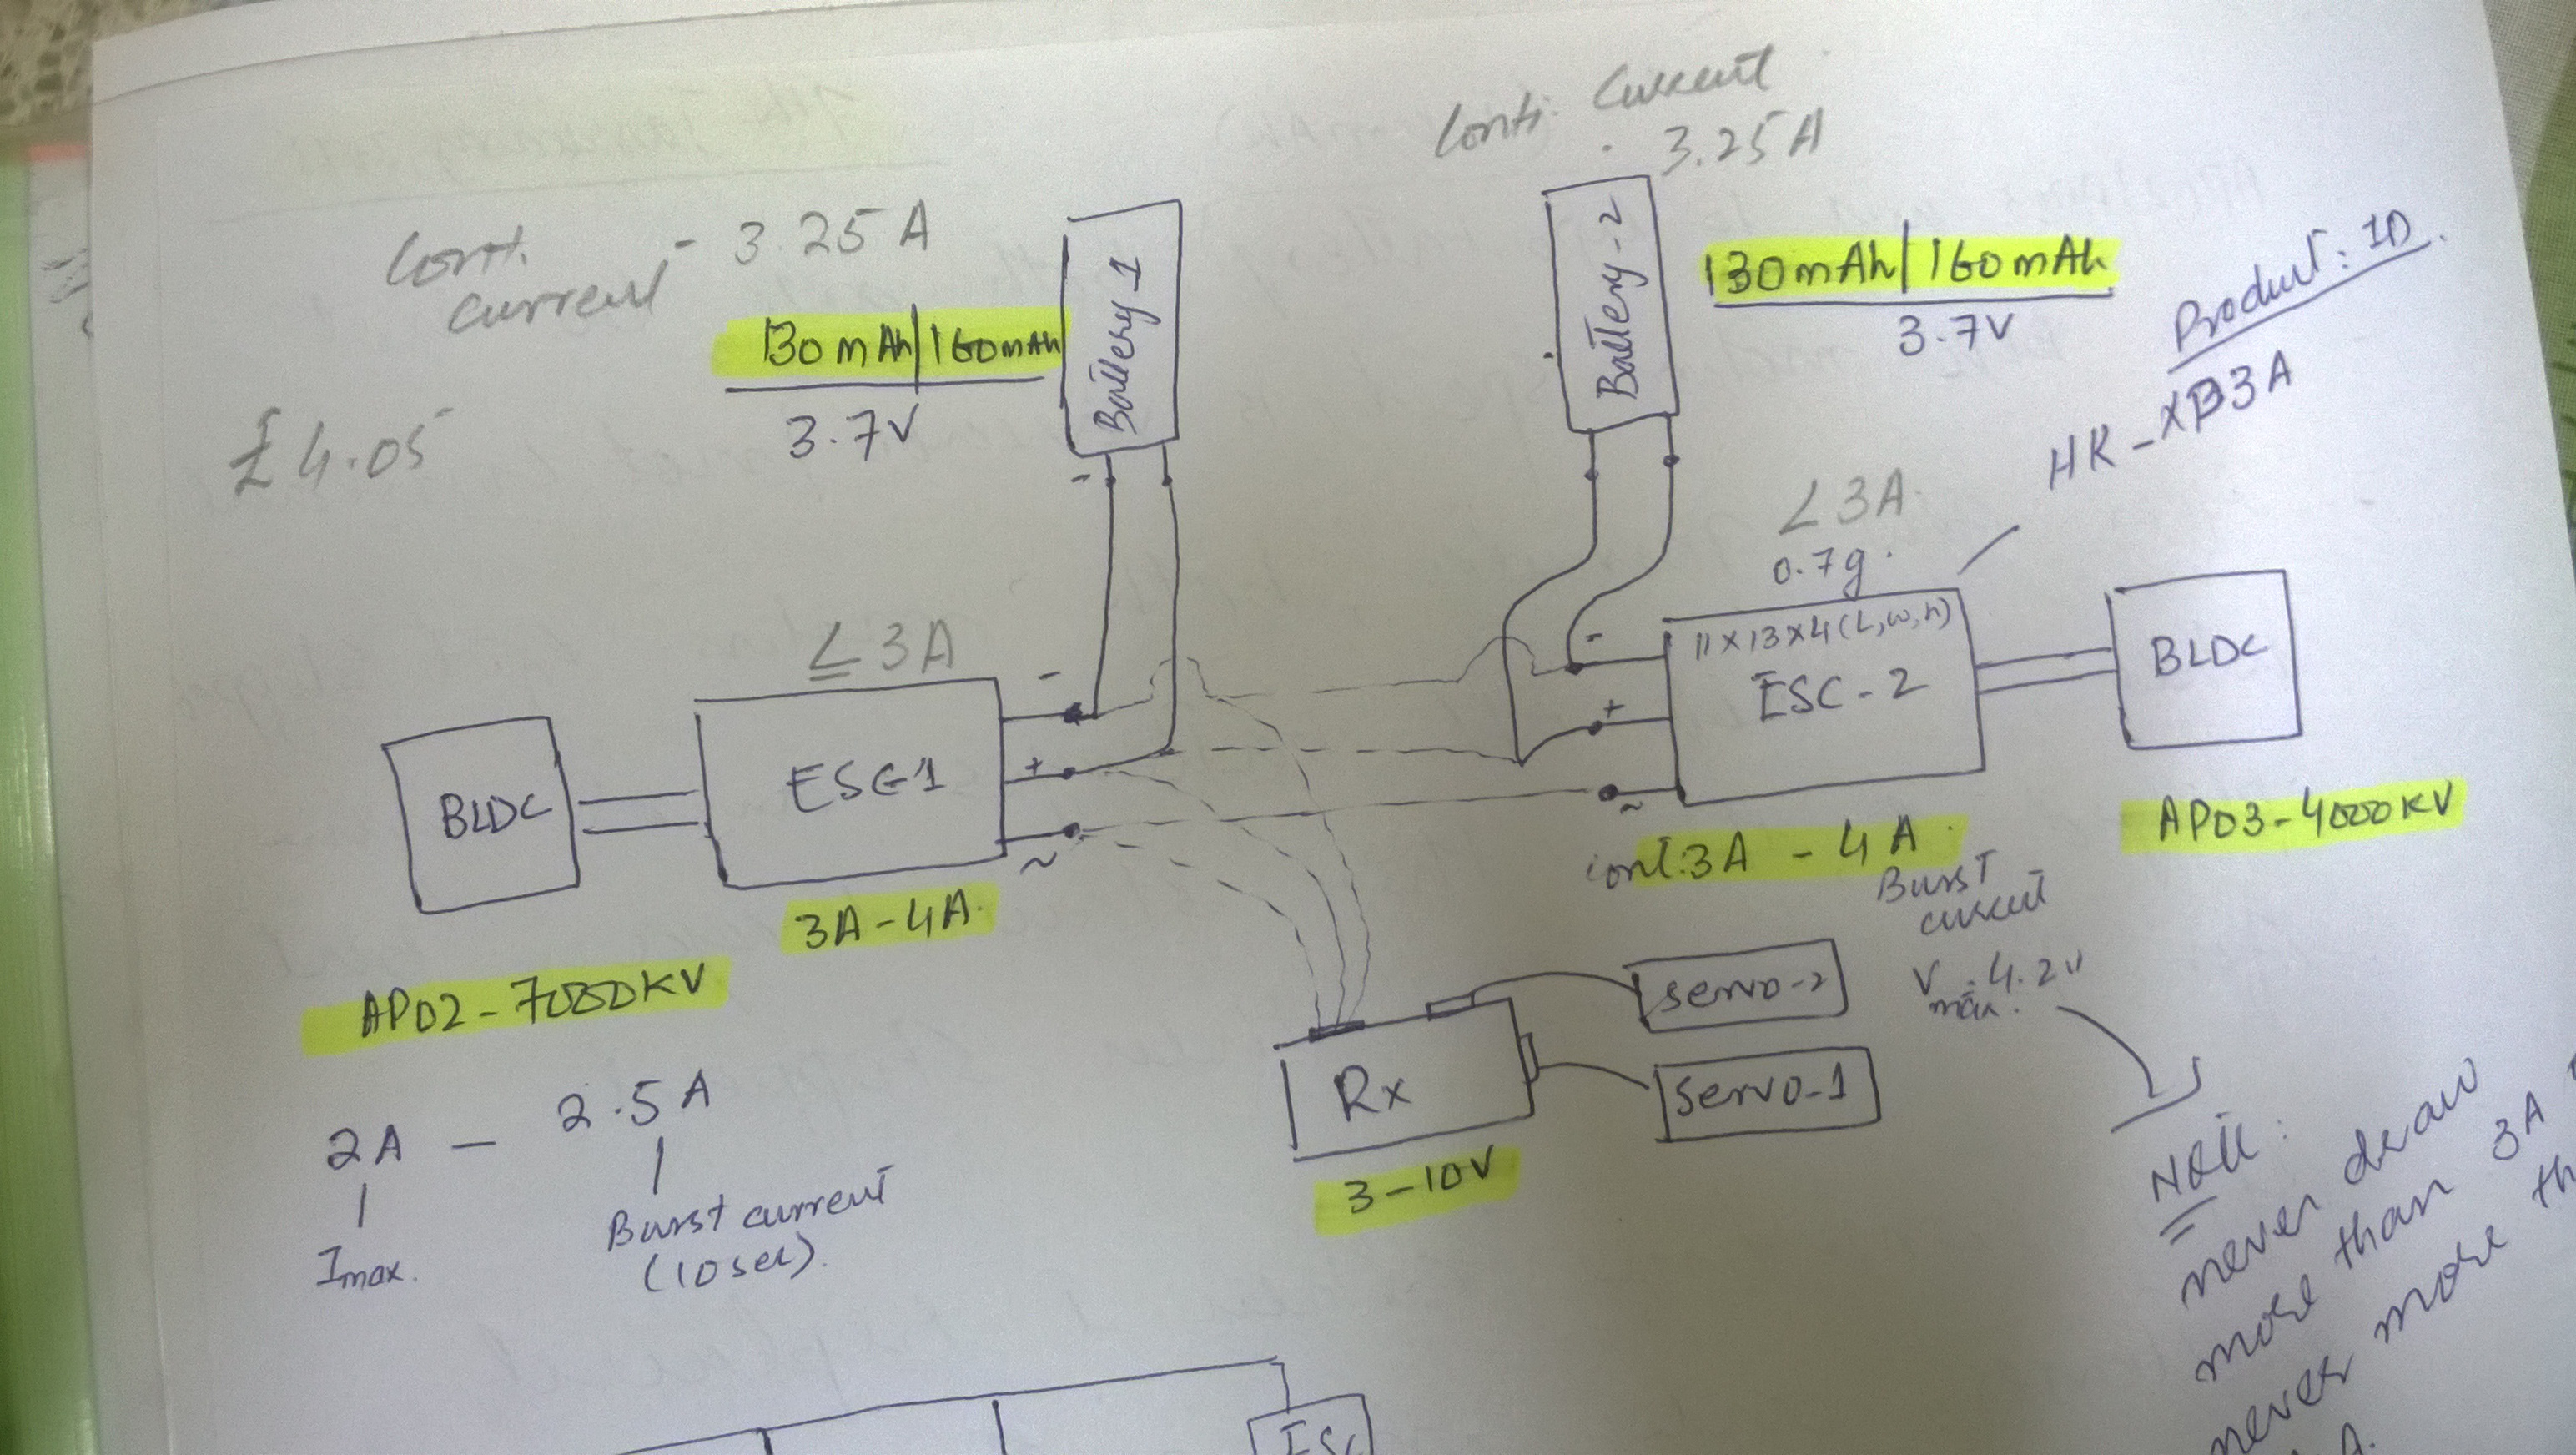 Conti. Current
. 3.25A
Conti. current - 3.25 A
130mAh/160mAh
3.7V
Battery-1
Battery-2
130mAh/160mAh
3.7V
Product: ID
HK-XP3A
£4.05
-
<3A
0.7g.
11x13x4(L,w,h)
ESC-2
-
+
~
BLDC
≤3A
ESC-1
-
+
~
BLDC
3A-4A.
cont:3A - 4A
Burst current
V max. = 4.2V
AP03-4000KV
AP02-7000KV
2A - 2.5A
Imax.
Burst current
(10sec).
Rx
3-10V
Servo-2
Servo-1
Note:
never draw
more than 3A
never more th
A.
ESC